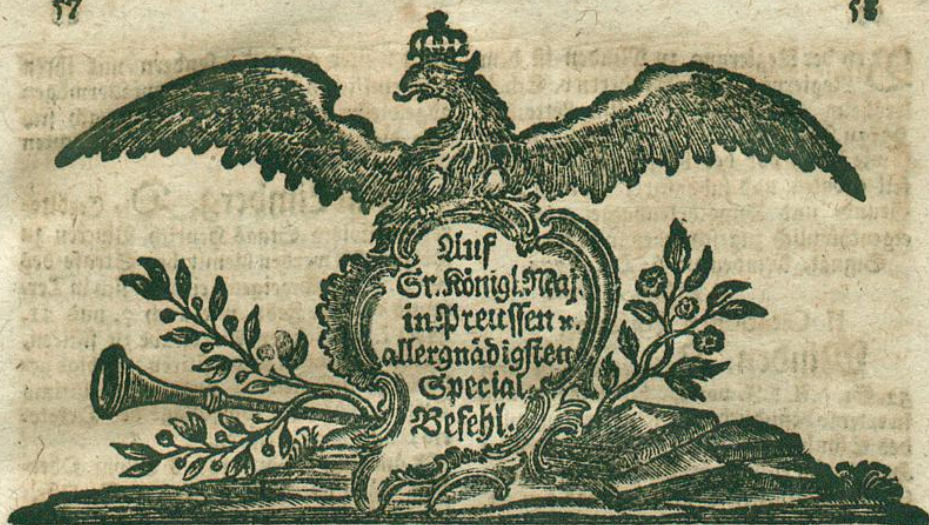 57 58
Auf
Sr. Königl. Maj.
in Preussen ꝛc.
allergnädigsten
Special-
Befehl.